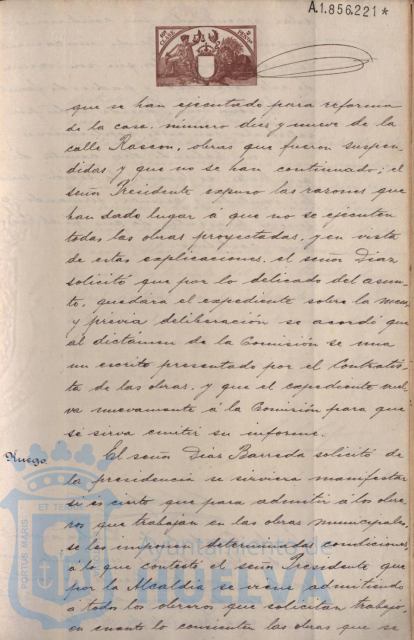 A.1.856.221*
que se han ejecutado para reforma
de la casa, número diez y nueve de la
calle Rascon, obras que fueron suspen-
didas y que no se han continuado; el
señor Presidente expuso las razones que
han dado lugar á que no se ejecuten
todas las obras proyectadas, y en vista
de estas explicaciones, el señor Diaz
solicitó que por lo delicado del asun-
to, quedára el expediente sobre la mesa
y prévia deliberación se acordó que
al dictámen de la Comisión se una
un escrito presentado por el Contratis-
ta de las obras, y que el expediente vuel-
va nuevamente á la Comisión para que
se sirva emitir su informe.
Ruego. El señor Diaz Barreda solicitó de
la presidencia se sirviera manifestar
si es cierto que para admitir á los obre-
ros que trabajan en las obras municipales
se les imponen determinadas condiciones,
á lo que contestó el señor Presidente que
por la Alcaldía se viene admitiendo
a todos los obreros que solicitan trabajo,
en cuanto lo consienten las obras que se
PORTUS MARIS
ET TE
Ayuntamiento de
HUELVA